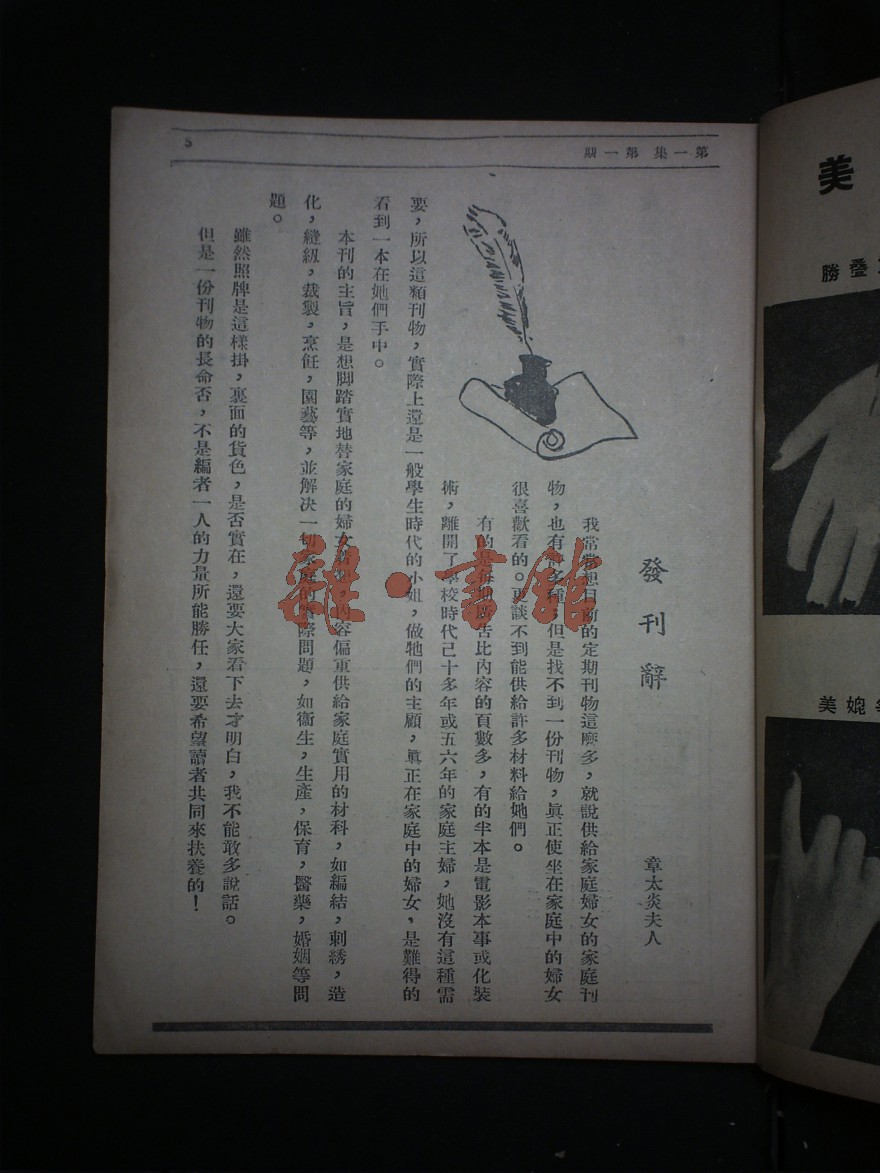 第一集 第一期
5
發刊辭
章太炎夫人
我常常想目前的定期刊物這麽多，就說供給家庭婦女的家庭刊
物，也有許多種，但是找不到一份刊物，眞正使坐在家庭中的婦女
很喜歡看的。更談不到能供給許多材料給她們。
有的是每期廣告比內容的頁數多，有的半本是電影本事或化裝
術，離開了學校時代已十多年或五六年的家庭主婦，她沒有這種需
要，所以這類刊物，實際上還是一般學生時代的小姐，做牠們的主顧，眞正在家庭中的婦女，是難得的
看到一本在她們手中。
本刊的主旨，是想脚踏實地替家庭的婦女 內容偏重供給家庭實用的材料，如編結，刺綉，造
化，縫級，裁製，烹飪，園藝等，並解决一切家庭的實際問題，如衞生，生產，保育，醫藥，婚姻等問
題。
雖然照牌是這樣掛，裏面的貨色，是否實在，還要大家看下去才明白，我不能敢多說話。
但是一份刊物的長命否，不是編者一人的力量所能勝任，還要希望讀者共同來扶養的！
雜·書館
美
疊勝
媲美